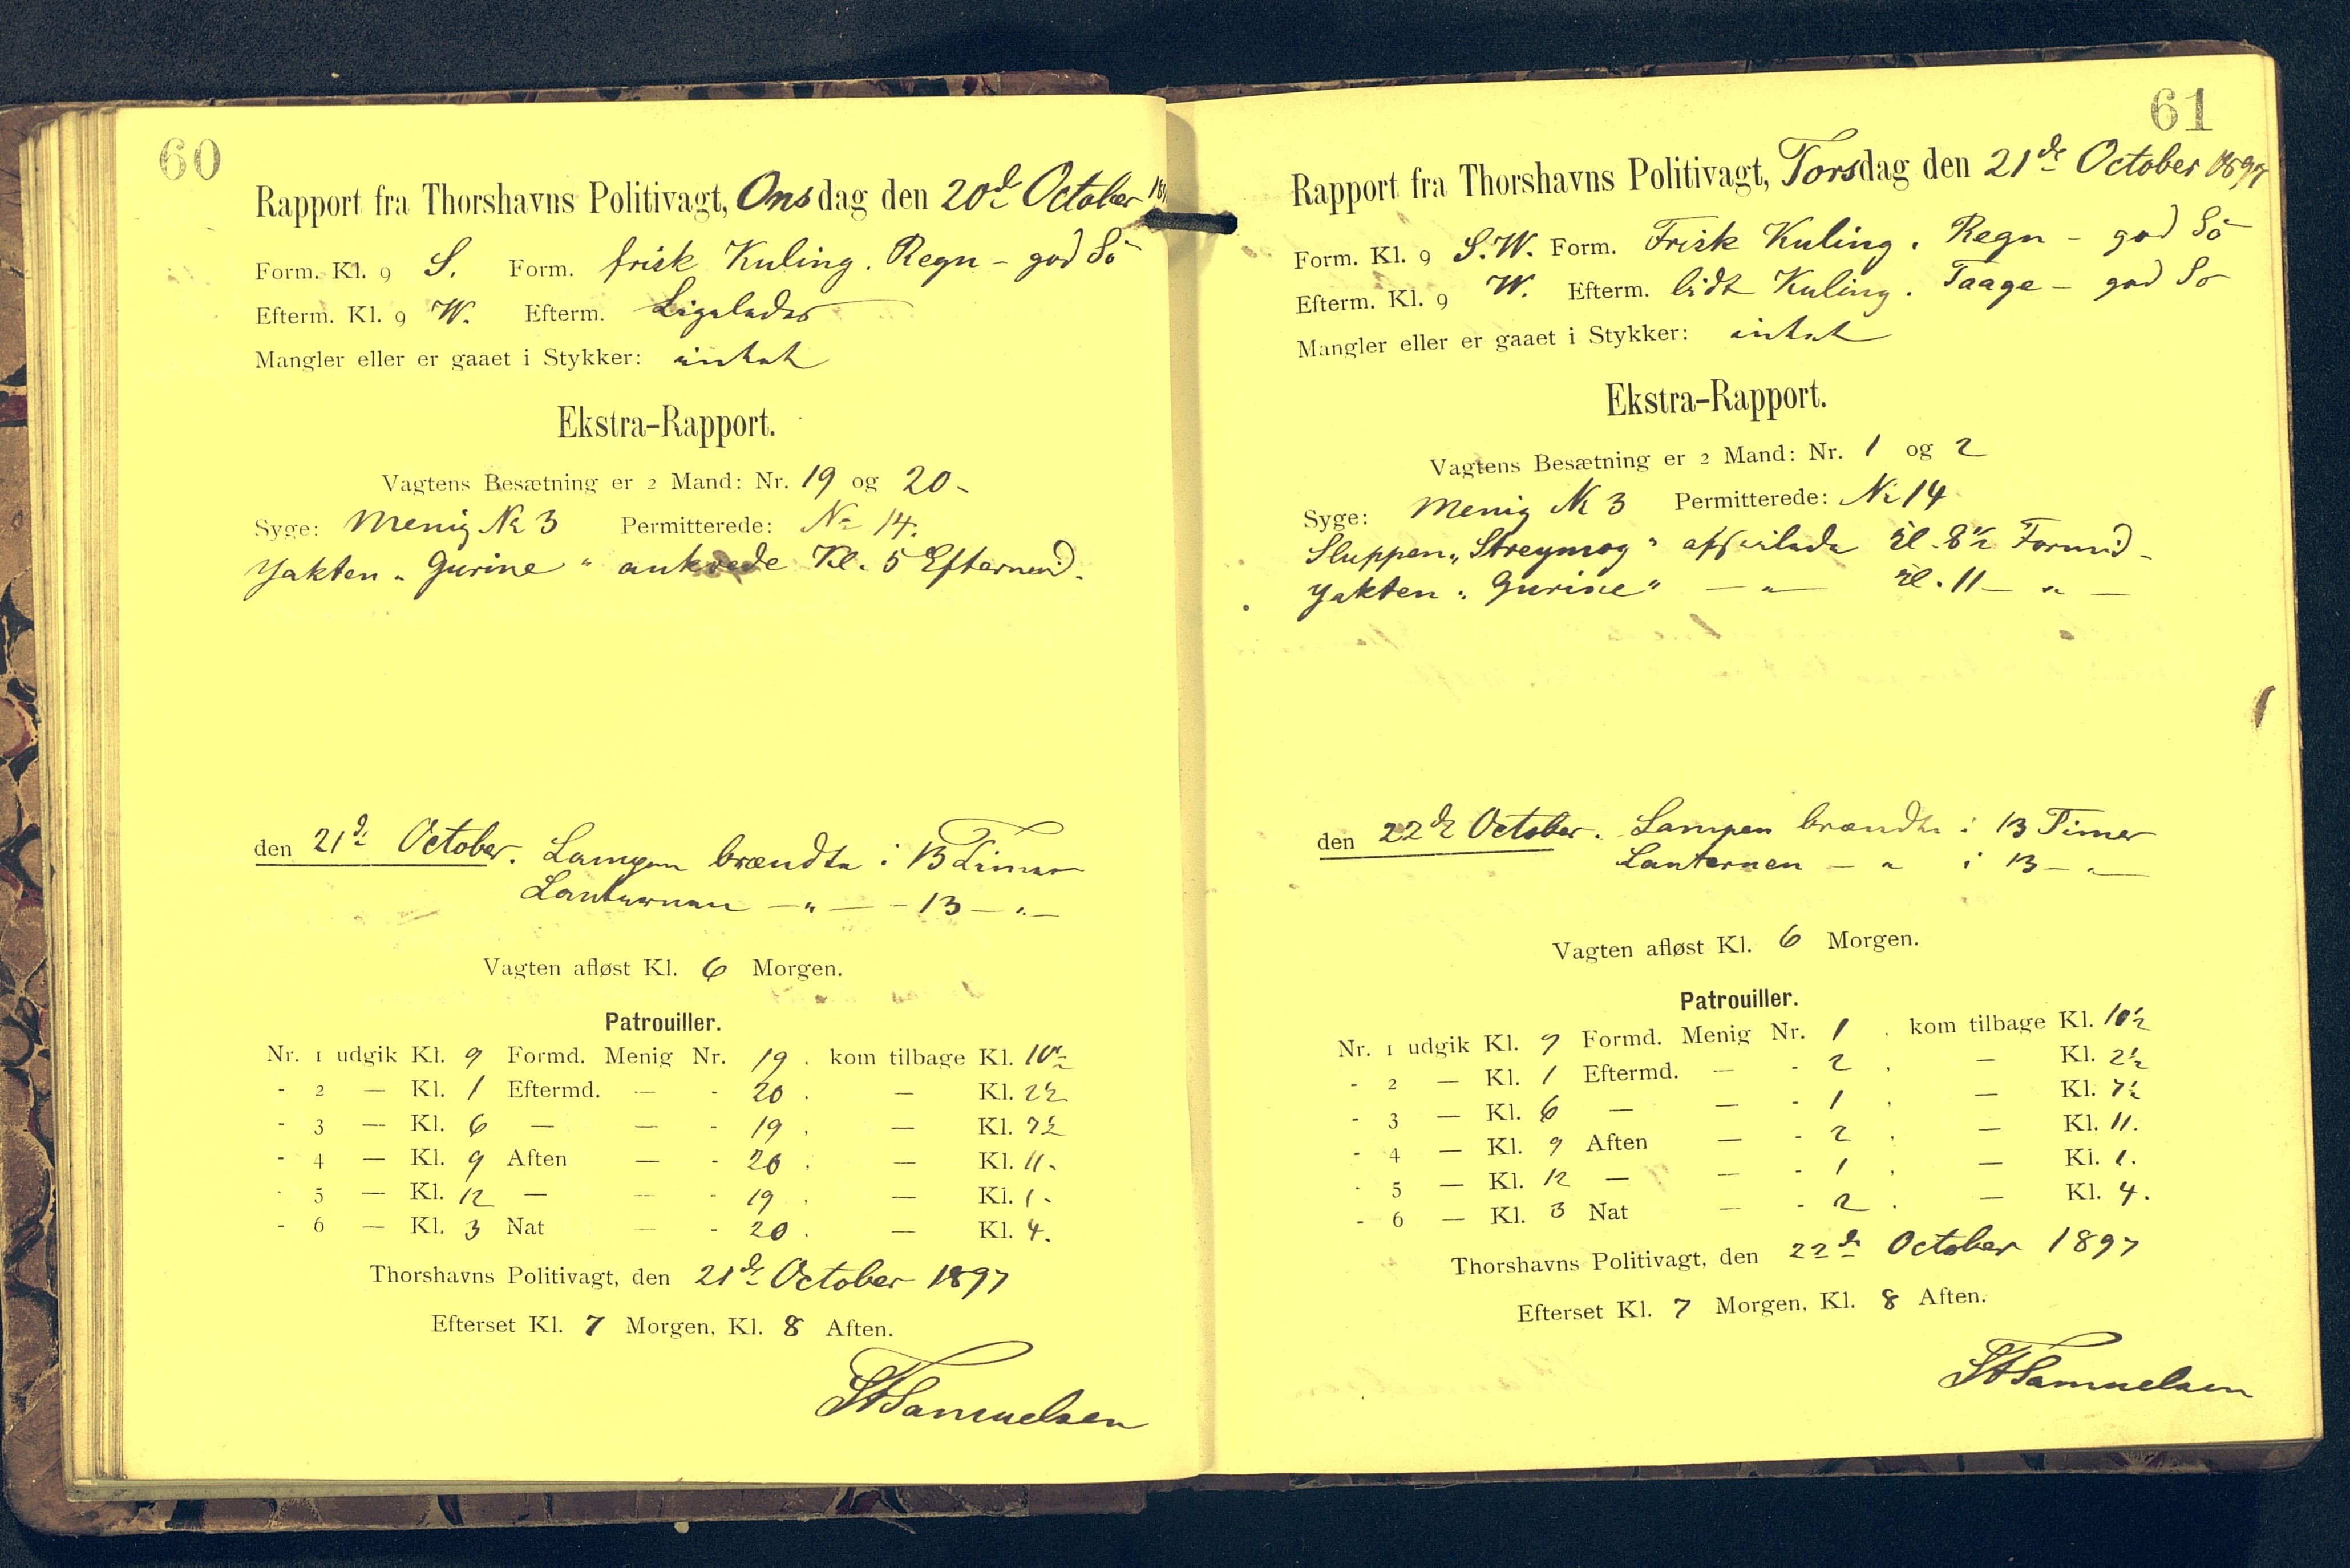 60
Rapport fra Thorshavns Politivagt, Onsdag den 20de October 189
Form. Kl. 9 S. Form. frisk Kuling. Regn - god Sö
Efterm. Kl. 9 W. Efterm. Ligeledes
Mangler eller er gaaet i Stykker: intet
Ekstra-Rapport.
Vagtens Besætning er 2 Mand: Nr. 19 og 20-
Syge: Menig No 3 Permitterede: No 14.
Jakten „Gurine" ankrede Kl. 5 Eftermd.
den 21de October. Lampen brændte i 13 Timer
Lanternen -"- - 13 -"-
Vagten afløst Kl. 6 Morgen.
Patrouiller.
Nr. 1 udgik Kl. 9 Formd. Menig Nr. 19. kom tilbage Kl. 10½
- 2 — Kl. 1 Eftermd. — - 20. — Kl. 2½
- 3 — Kl. 6 — — - 19. — Kl. 7½
- 4 — Kl. 9 Aften — - 20. — Kl. 11.
- 5 — Kl. 12 — — - 19. — Kl. 1.
- 6 — Kl. 3 Nat — - 20. — Kl. 4.
Thorshavns Politivagt, den 21de October 1897
Efterset Kl. 7 Morgen, Kl. 8 Aften.
Samuelsen
61
Rapport fra Thorshavns Politivagt, Torsdag den 21de October 1897
Form. Kl. 9 S.W. Form. Frisk Kuling. Regn - god Sö
Efterm. Kl. 9 W. Efterm. lidt Kuling. Taage - god Sö
Mangler eller er gaaet i Stykker: intet
Ekstra-Rapport.
Vagtens Besætning er 2 Mand: Nr. 1 og 2
Syge: Menig No 3 Permitterede: No 14
Sluppen „Streymoy" afseilede Kl. 8½ Formd-
Jakten „Gurine" — " — Kl. 11 — " —
den 22de October. Lampen brændte i 13 Timer
Lanternen - " i 13 - " -
Vagten afløst Kl. 6 Morgen.
Patrouiller.
Nr. 1 udgik Kl. 9 Formd. Menig Nr. 1. kom tilbage Kl. 10½
- 2 — Kl. 1 Eftermd. — - 2. — Kl. 2½
- 3 — Kl. 6 — — - 1. — Kl. 7½
- 4 — Kl. 9 Aften — - 2. — Kl. 11.
- 5 — Kl. 12 — — - 1. — Kl. 1.
- 6 — Kl. 3 Nat — - 2. — Kl. 4.
Thorshavns Politivagt, den 22de October 1897
Efterset Kl. 7 Morgen, Kl. 8 Aften.
Samuelsen